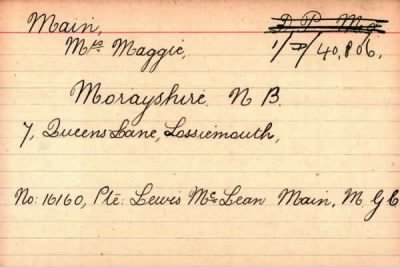 Main,
Mrs. Maggie,
1/D/40,806,
Morayshire. N B.
7, Queens Lane, Lossiemouth,
No: 16160, Pte: Lewis McLean Main, M G C